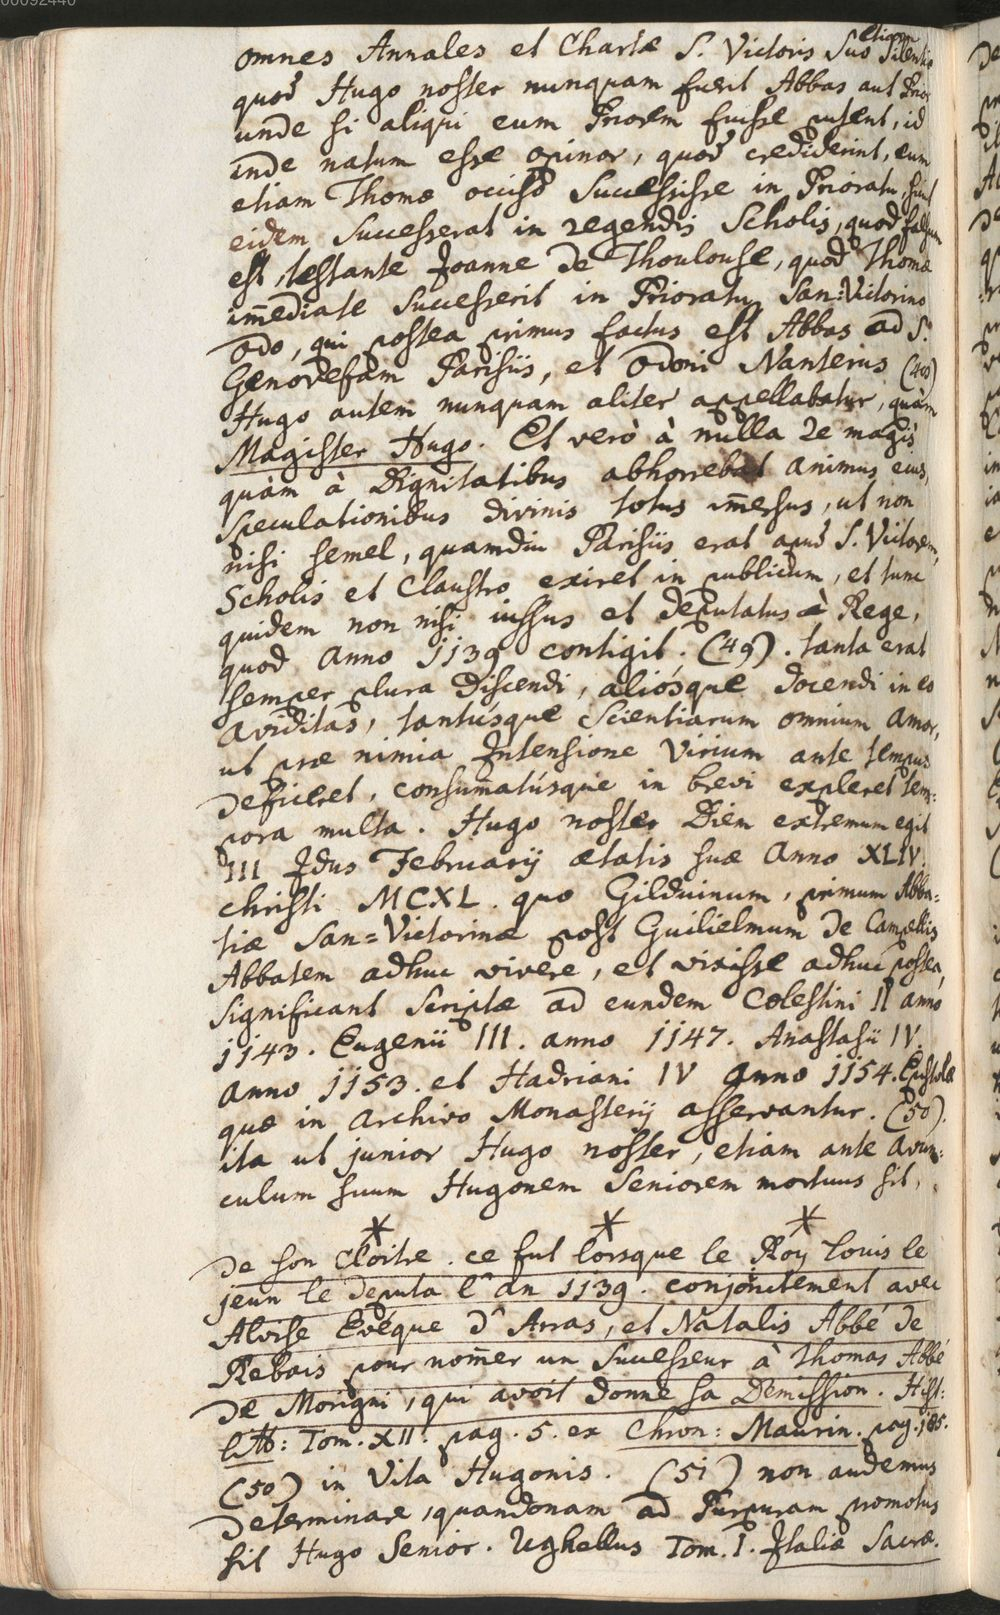 omnes Annales et Chartæ S. Victoris suo etiam silentio
quod Hugo noster nunquam fuerit Abbas aut Prior
unde si aliqui eum Priorem fuisse putent, id
inde natum esse opinor, quod crediderint, eum
etiam Thomæ occiso successisse in Prioratu, sicut
eidem successerat in regendis Scholis, quod falsum
est, testante Joanne de Thoulouse, quod Thomæ
im̄ediate successerit in Prioratu San=Victorino
Odo, qui postea primus factus est Abbas ad S.
Genovefam Parisiis, et Odoni Nanterus (48)
Hugo autem nunquam aliter appellabatur, quàm
Magister Hugo. Et verò à nulla re magis
quàm à Dignitatibus abhorrebat animus eius,
speculationibus divinis totus im̄ersus, ut non
nisi semel, quamdiu Parisiis erat apud S. Victorem,
Scholis et Claustro exiret in publicum, et tunc
quidem non nisi iussus et deputatus à Rege,
quod anno 1139 contigit. (49). tanta erat
semper plura discendi, aliósque docendi in eo
aviditas, tantúsque scientiarum omnium amor,
ut præ nimia Intensione virium ante tempus
deficeret, consum̄atúsque in brevi expleret tem=
pora multa. Hugo noster Diem extremum egit
III Idus Februarij ætatis suæ Anno XLIV.
Christi MCXL. quo Gilduinum, primum Abba=
tiæ San=Victorinæ post Guilielmum de Campellis
Abbatem adhuc vivere, et vixisse adhuc postea,
significant scriptæ ad eundem Cœlestini II anno
1143. Eugenii III. anno 1147. Anastasii IV.
anno 1153. et Hadriani IV anno 1154. Epistolæ
quæ in Archivo Monasterij asservantur. (50).
ita ut junior Hugo noster, etiam ante avun=
culum suum Hugonem Seniorem mortuus sit,
* * *
de son Cloitre. ce fut lorsque le Roy Louis le
jeun le deputa l'an 1139. conjoñtement avec
Alvise Evéque d'Arras, et Natalis Abbé de
Rebais pour nom̄er un Successeur à Thomas Abbé
de Morigni, qui avoit donne sa Demission. Hist:
litt: Tom. XII. pag. 5. ex Chron: Maurin. pag. 185.
(50) in Vita Hugonis. (51) non audemus
determinare, quandonam ad Purpuram promotus
sit Hugo Senior. Ughellus Tom. I. Italiæ Sacræ.